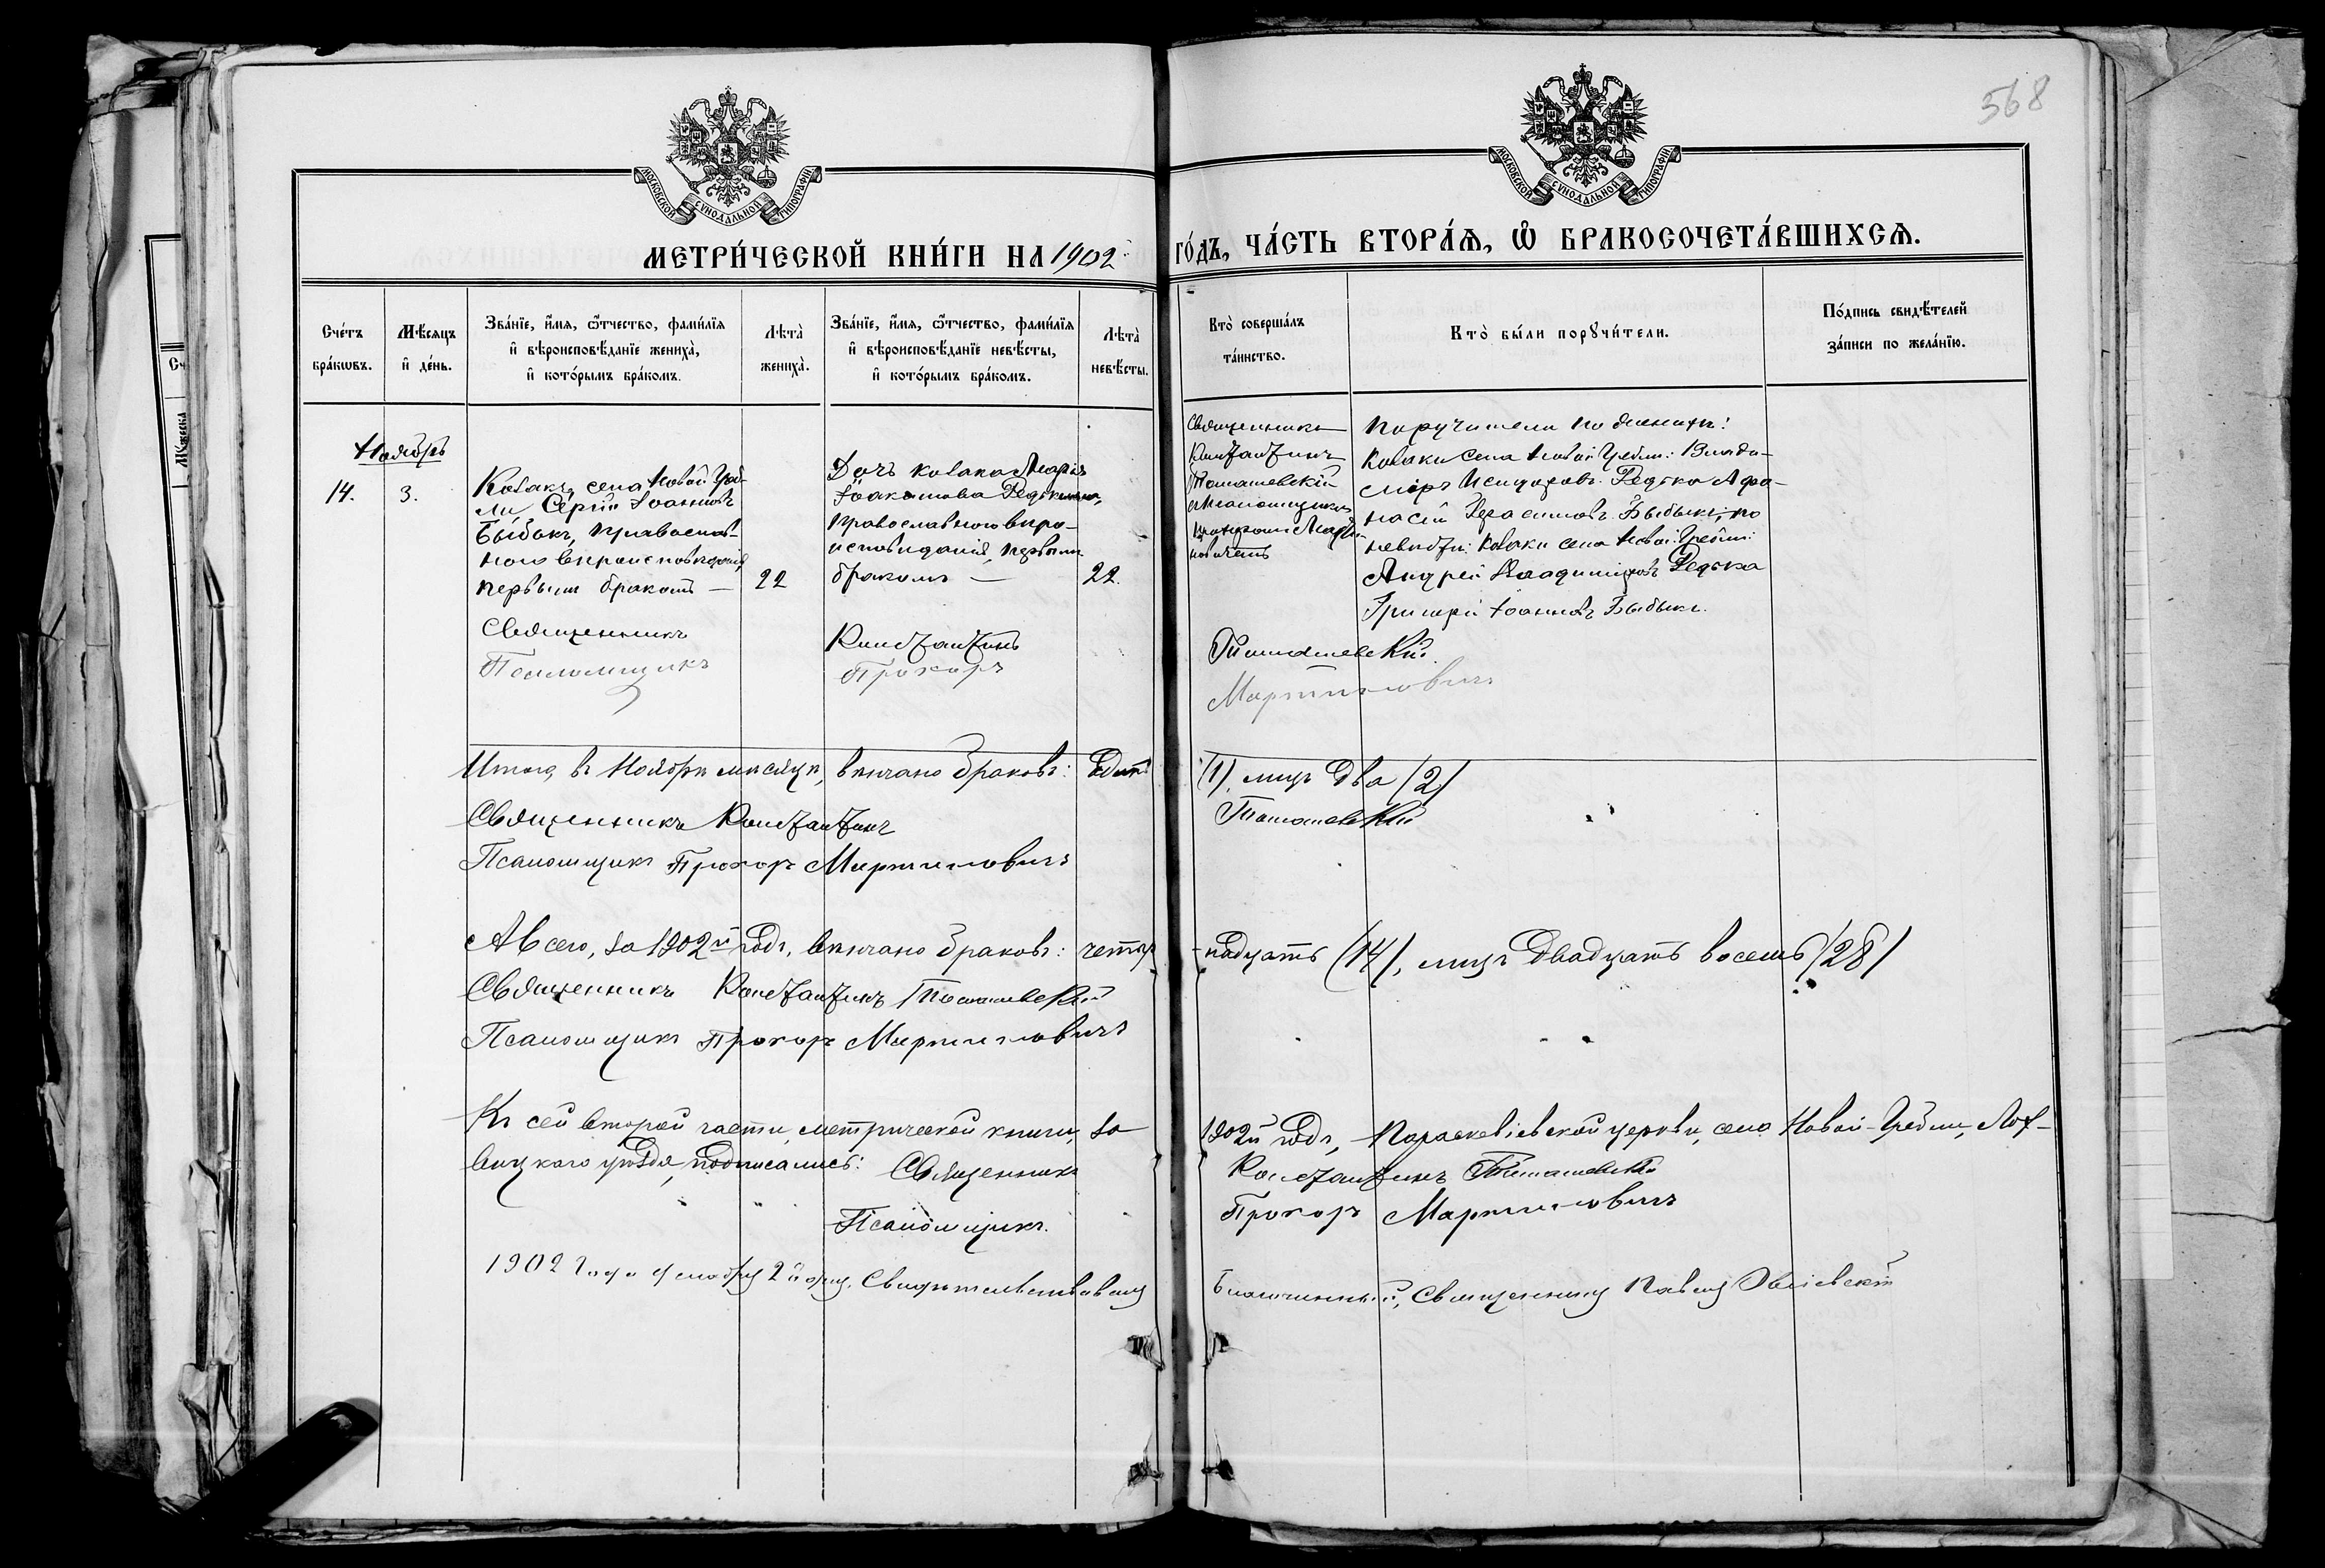 568
МОСКОВСКОЙ СѴНОДАЛЬНОЙ ТИПОГРАФІИ
МОСКОВСКОЙ СѴНОДАЛЬНОЙ ТИПОГРАФІИ
МЕТРИ́ЧЕСКОЙ КНИ́ГИ НА 1902 ГО́ДЪ, ЧА́СТЬ ВТОРА́Ѧ, Ѽ БРАКОСОЧЕТА́ВШИХСѦ.
Сче́тъ
бра́кѡвъ.
Мѣ́сѧцъ
и҆ де́нь.
Зва́нїе, и҆́мѧ, ѻ҆́тчество, фами́лїѧ
и҆ вѣроисповѣ́данїе жениха̀,
и҆ кото́рымъ бра́комъ.
Лѣта̀
жениха̀.
Зва́нїе, и҆́мѧ, ѻ҆́тчество, фами́лїѧ
и҆ вѣроисповѣ́данїе невѣ́сты,
и҆ кото́рымъ бра́комъ.
Лѣта̀
невѣ́сты.
Кто̀ соверша́лъ
та́инство.
Кто̀ бы́ли порꙋчи́тели.
По́дпись свидѣ́телей
за́писи по жела́нїю.
Ноябрь
14.
3.
Козакъ села Новой Греб-
ли, Сергій Іоанновъ
Быбыкъ, православ-
наго вѣроисповѣданія,
первымъ бракомъ —
22
Дочь козака Марія
Іоакимова Редькина,
православнаго вѣро-
исповѣданія, первымъ
бракомъ —
22.
Священникъ
Константинъ
Томашевскій
Поручители по женихѣ:
козаки села Новой Гребли: Влади-
міръ Исидоровъ Редька Афа-
насій Герасимовъ Быбыкъ; по
невѣстѣ: козаки села Новой Гребли:
Андрей Владиміровъ Редька
Григорій Іоанновъ Быбыкъ.
Священникъ Константинъ Томашевскій.
Псаломщикъ Прохоръ Мартиновичъ
Итого, въ Ноябрѣ мѣсяцѣ, вѣнчано браковъ: Одинъ (1), лицъ Два (2)
Священникъ Константинъ Томашевскій
Псаломщикъ Прохоръ Мартиновичъ
А всего, за 1902й годъ, вѣнчано браковъ: четыр-надцать (14), лицъ Двадцать восемь (28)
Священникъ Константинъ Томашевскій
Псаломщикъ Прохоръ Мартиновичъ
Къ сей второй части, метрической книги, за 1902й годъ, Параскевіевской церкви, села Новой-Гребли, Лох-
вицкаго уѣзда, подписались: Священникъ Константинъ Томашевскій
Псаломщикъ. Прохоръ Мартиновичъ
1902 года 2й Свидѣтельствовалъ Благочинный, Священникъ Павелъ